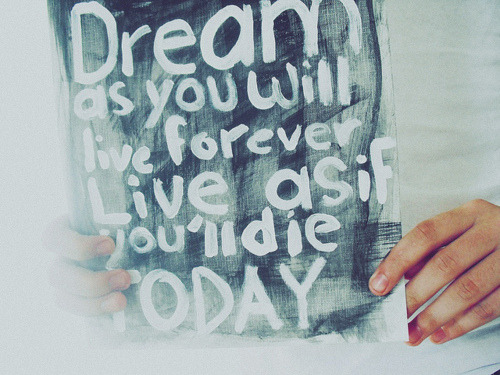 Dream
as you will
live forever
Live as if
you'll die
TODAY